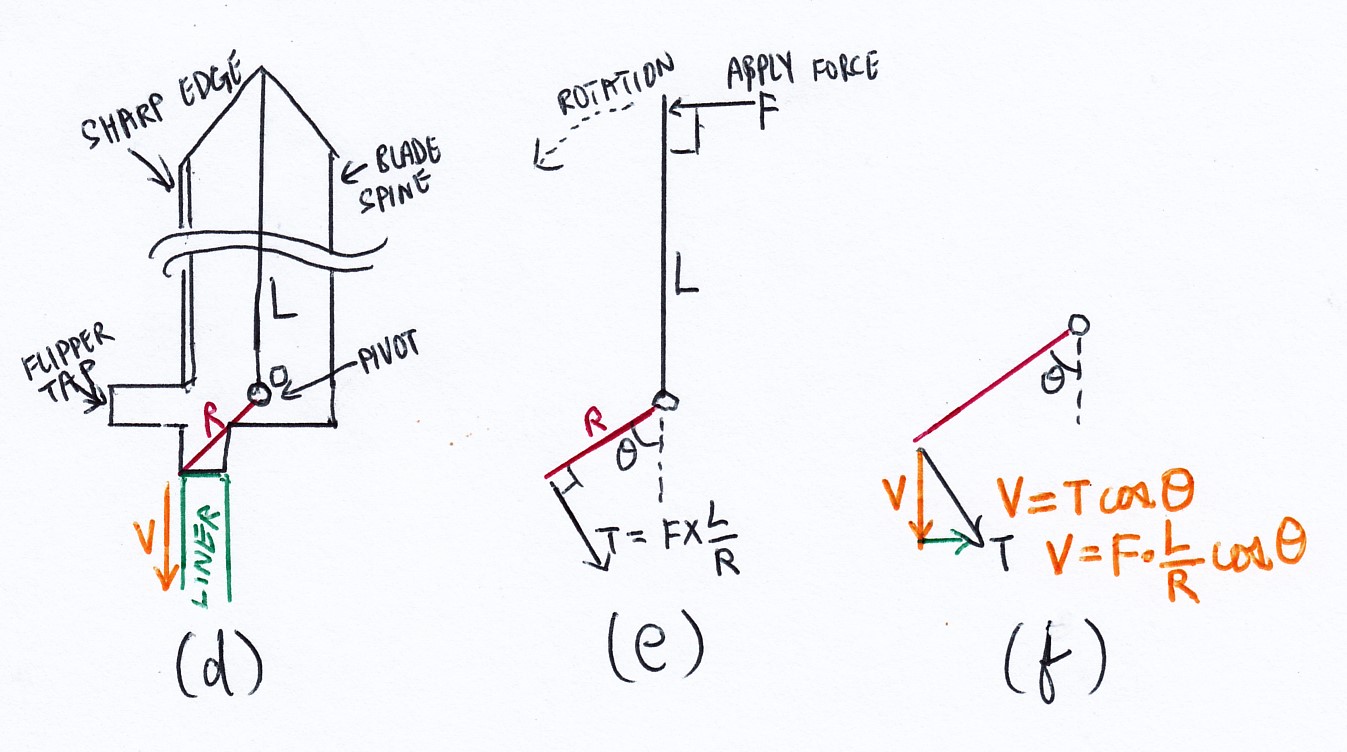 SHARP EDGE
BLADE
SPINE
L
FLIPPER
TAP
O
PIVOT
R
V
LINER
(d)
ROTATION
APPLY FORCE
F
L
R
θ
T = F X L/R
(e)
θ
V
V = T cos θ
T
V = F · L/R cos θ
(f)